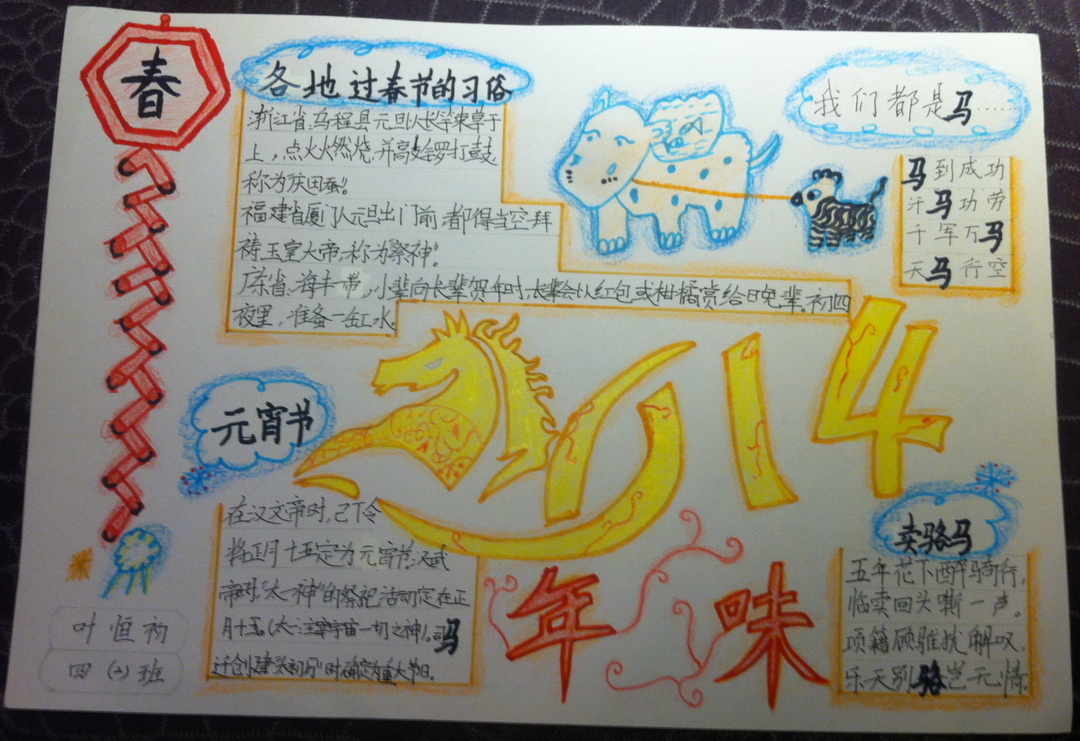 春
各地过春节的习俗
浙江省:乌程县元旦人长竿束草于
上,点火燃烧,并高敲锣打鼓
称为"庆田蚕"。
福建省厦门人元旦出门前都得当空拜
祷玉皇大帝,称为"祭神"。
广东省:海丰一带,小辈向长辈贺年时,长辈会以红包或柑橘赏给晚辈。初四
夜里,准备一缸水
我们都是马……
马到成功
汗马功劳
千军万马
天马行空
2014
元宵节
在汉文帝时,已下令
将正月十五定为元宵节。汉武
帝时,"太一神"的祭祀活动定在正
月十五。(太一:主宰宇宙一切之神)。司马
迁创建"太初历"时确定为重大节日。
年味
卖骆马
五年花下醉骑行,
临卖回头嘶一声。
项籍顾骓犹解叹,
乐天别骆岂无情。
叶恒
四(二)班